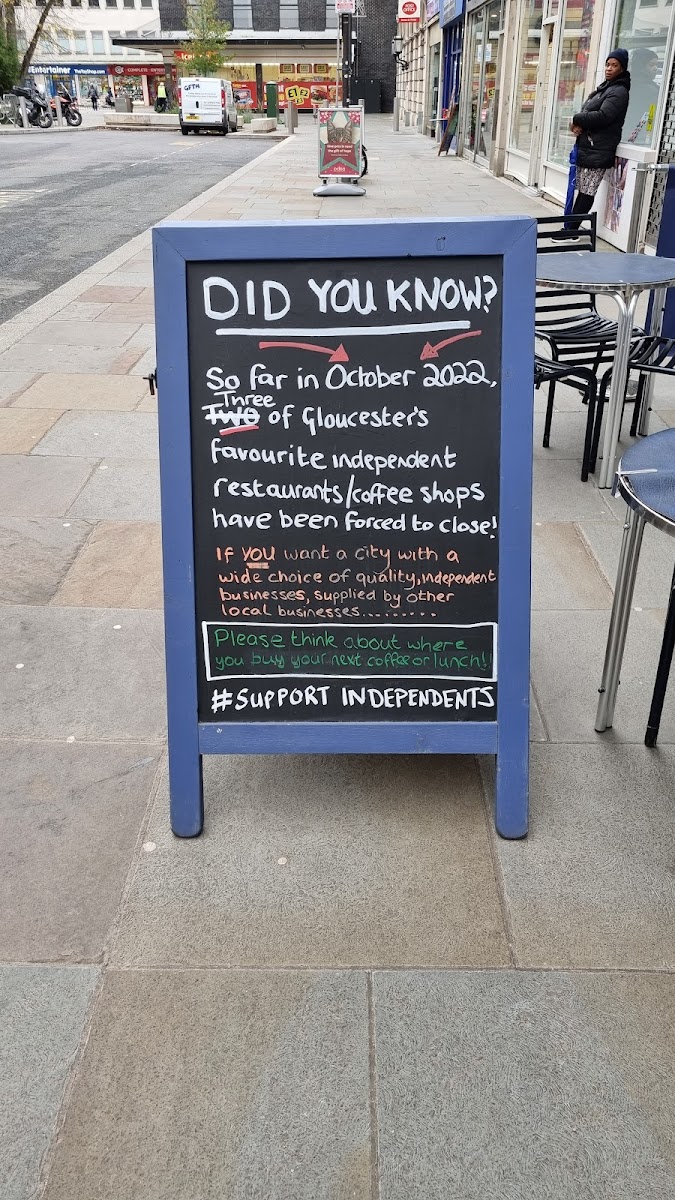 POST OFFICE
theEntertainer
TheToyShop.com
COMPLETE
GFTH
£1 £2
DID YOU KNOW?
So far in October 2022,
Three
TWO of Gloucester's
favourite independent
restaurants/coffee shops
have been forced to close!
If YOU want a city with a
wide choice of quality, independent
businesses, supplied by other
local businesses.........
Please think about where
you buy your next coffee or lunch!
#SUPPORT INDEPENDENTS